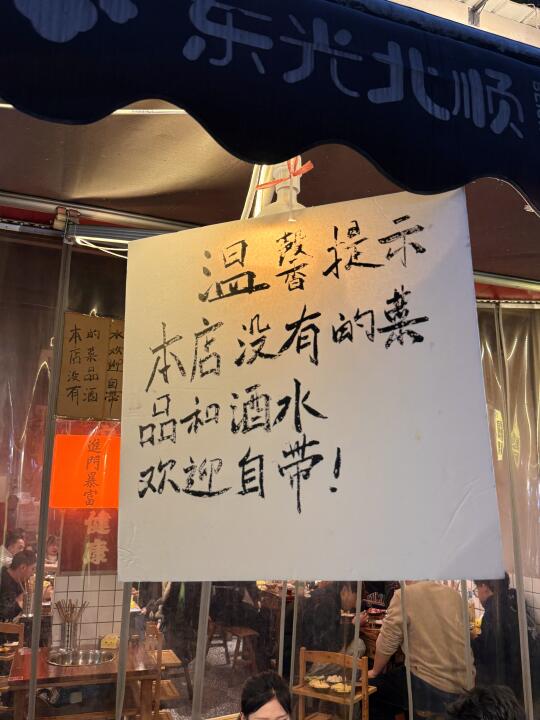 东光北顺
温馨提示
本店没有的菜
品和酒水
欢迎自带!
本店没有
的菜品酒
水欢迎自带
進門暴富
健康